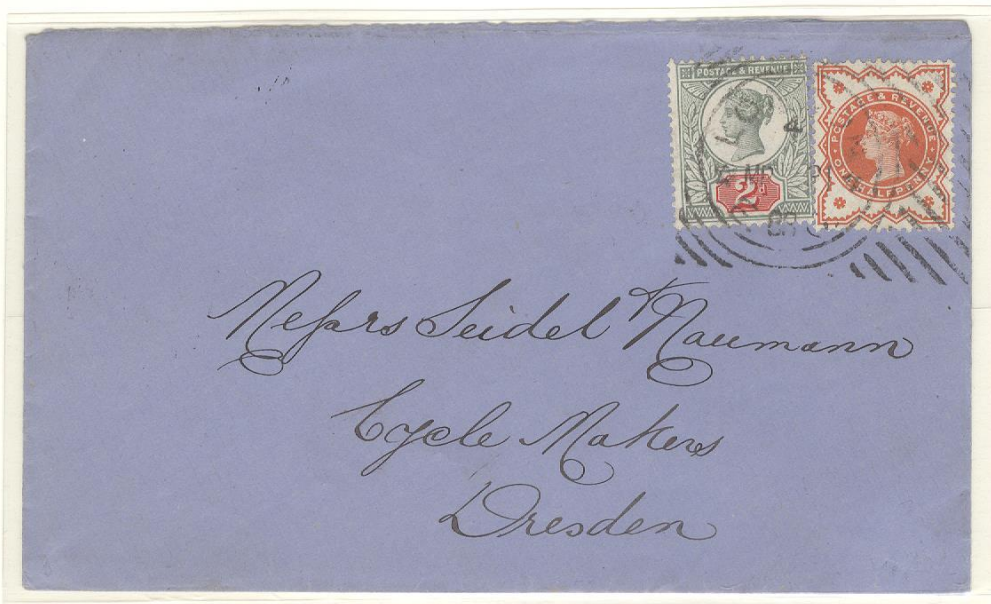 POSTAGE & REVENUE
2d
POSTAGE & REVENUE
ONE HALFPENNY
Messrs Seidel & Naumann
Cycle Makers
Dresden